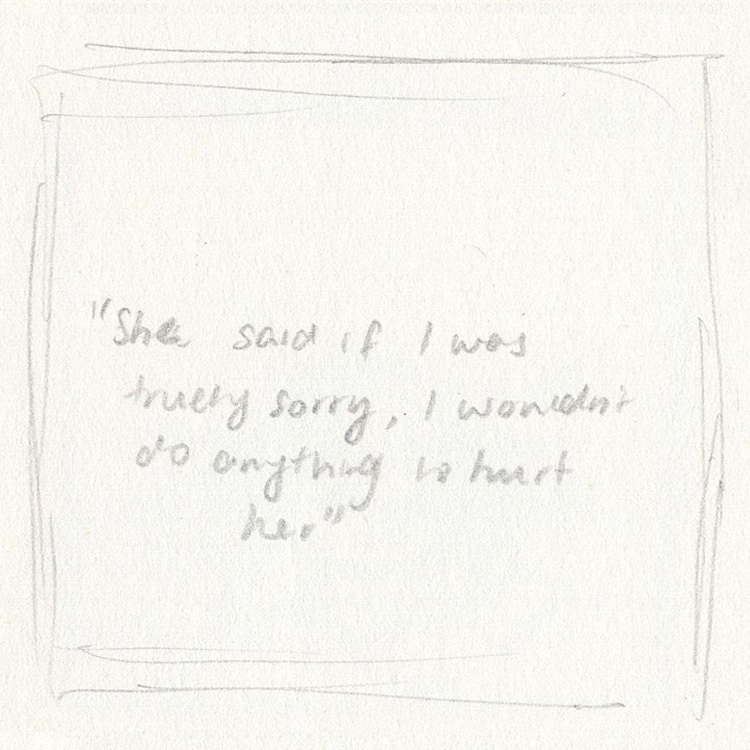 "She said if I was
truely sorry, I wouldn't
do anything to hurt
her"